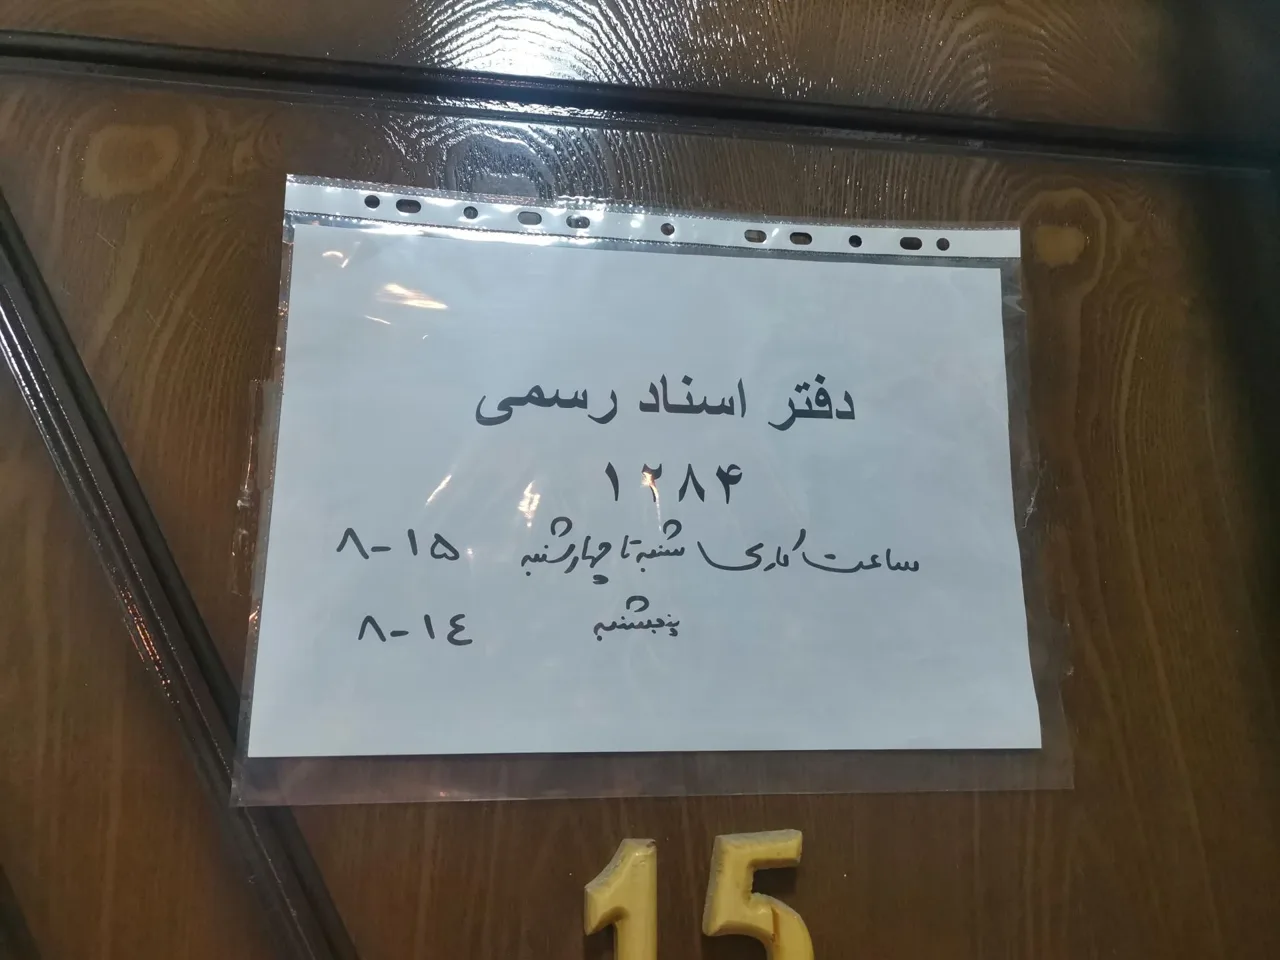 دفتر اسناد رسمی
۱۲۸۴
ساعت کاری شنبه تا چهارشنبه ۸-۱۵
پنجشنبه ۸-۱٤
15